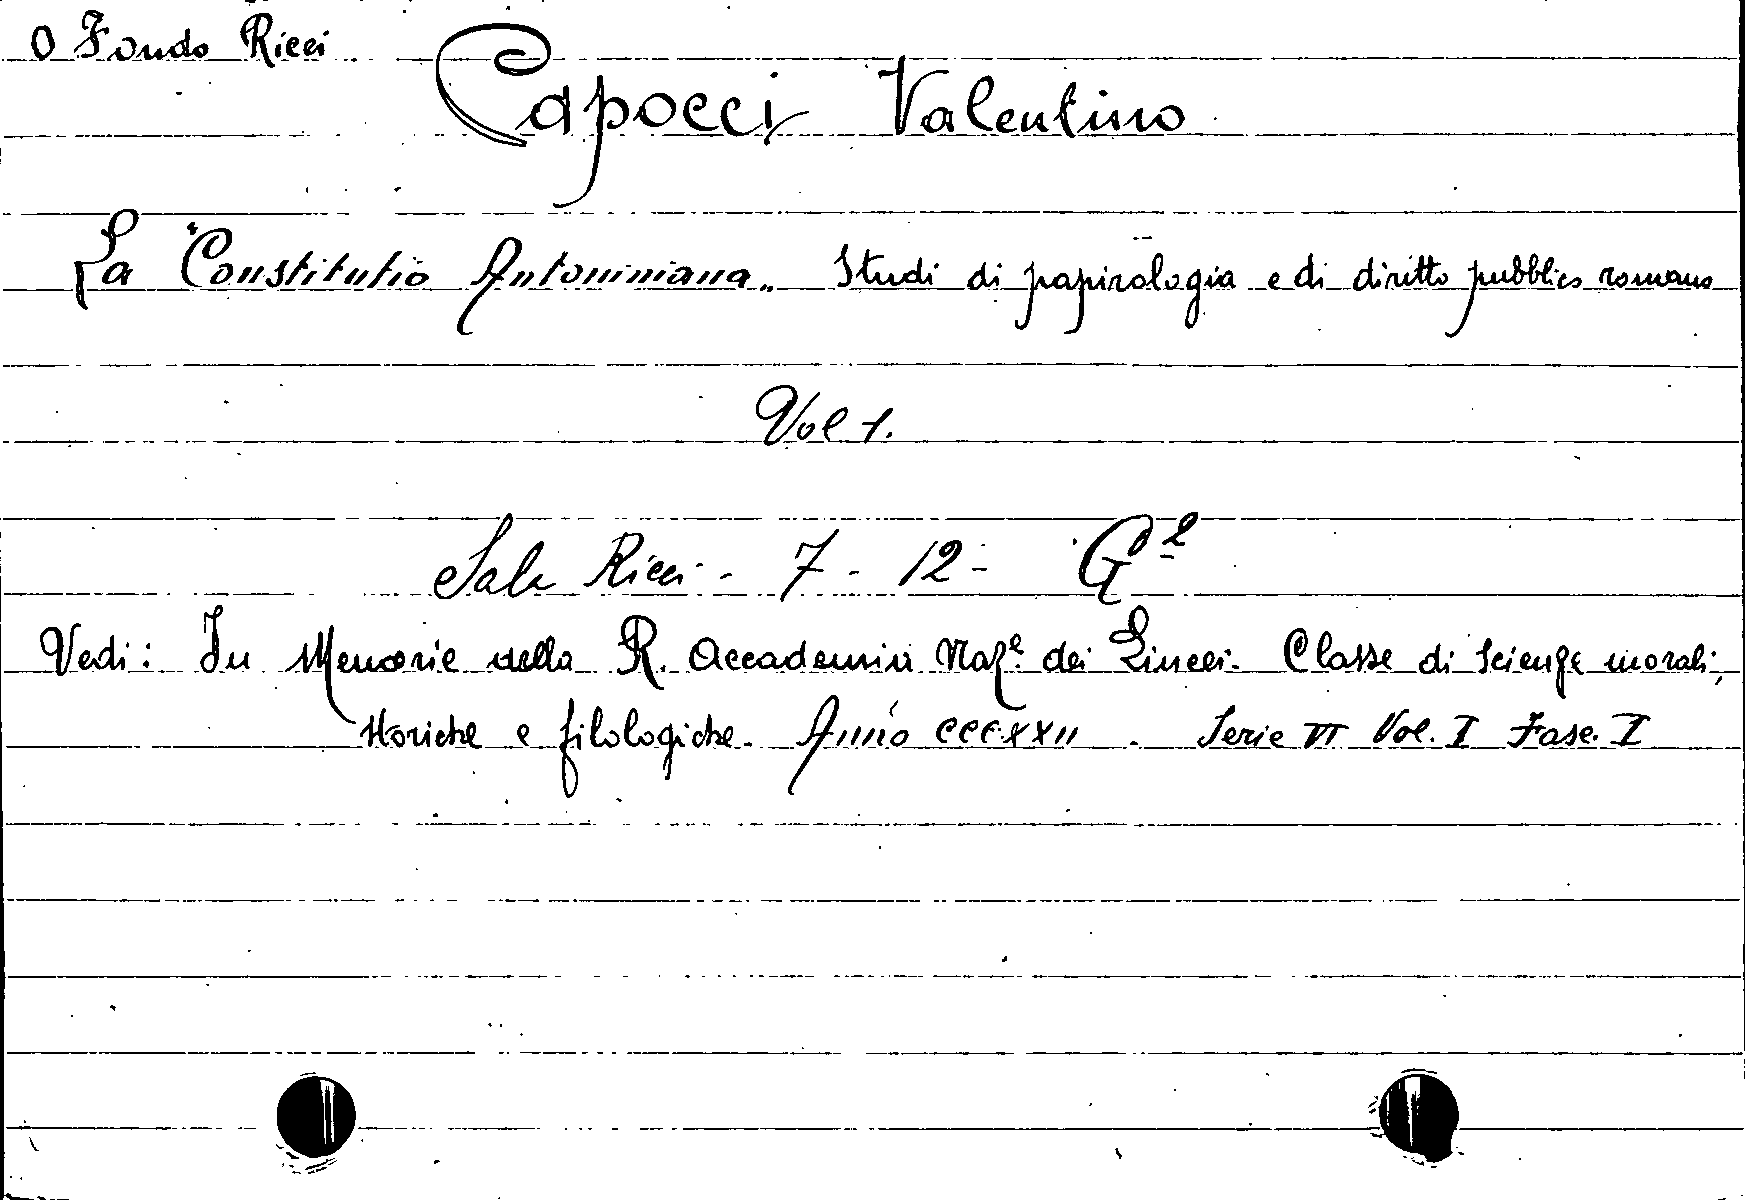 O Fondo Ricci
Capocci Valentino
La "Constitutio Antoniniana„ Studi di papirologia e di diritto pubblico romano
Vol 1.
Sala Ricci - 7 - 12 - G²
Vedi: In Memorie della R. Accademia Naz.e dei Lincei. Classe di Scienze morali,
storiche e filologiche. Anno CCCXXII. Serie VI Vol. I Fasc. I